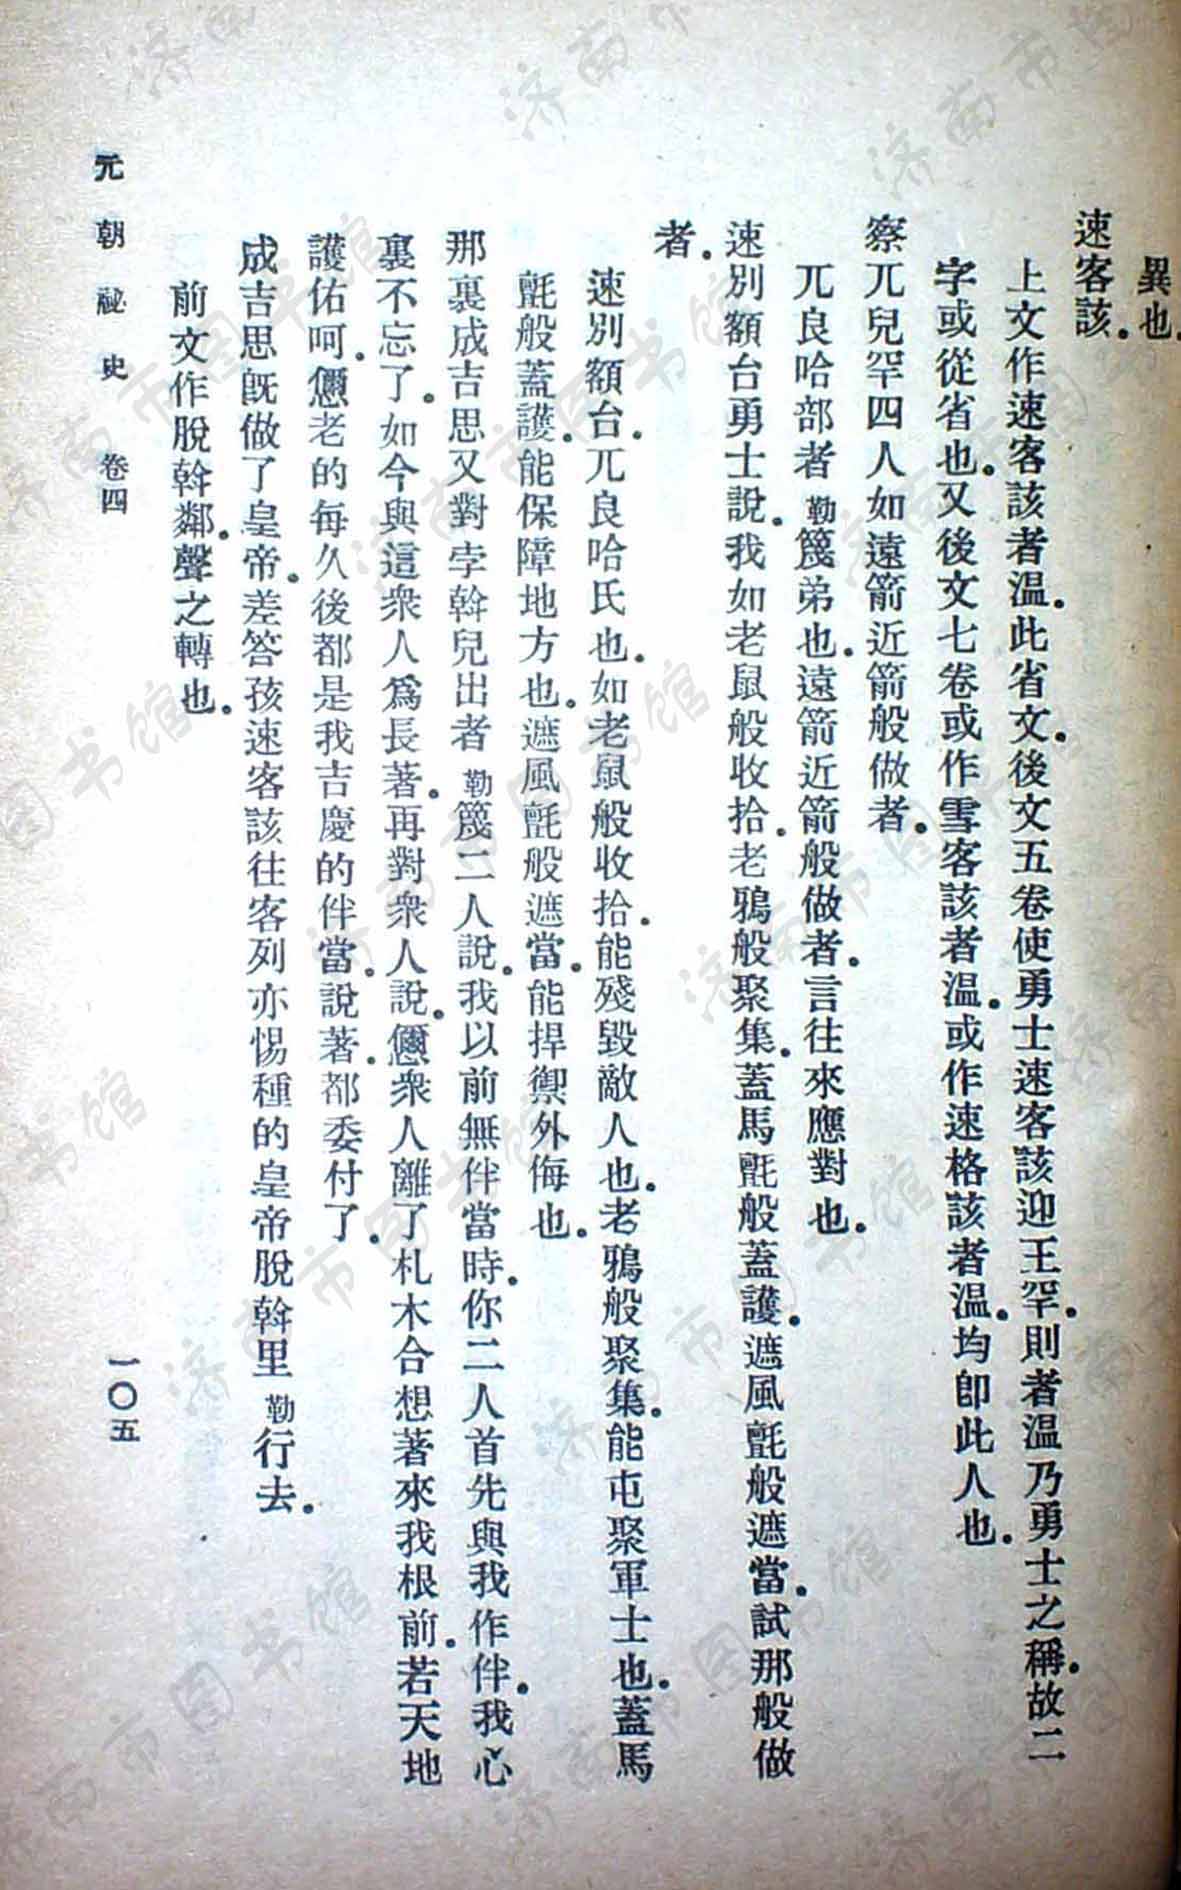 異也。
速客該。
上文作速客該者溫。此省文。後文五卷使勇士速客該迎王罕。則者溫乃勇士之稱。故二
字或從省也。又後文七卷或作雪客該者溫。或作速格該者溫。均即此人也。
察兀兒罕四人如遠箭近箭般做者。
兀良哈部者勒篾弟也。遠箭近箭般做者。言往來應對也。
速別額台勇士說。我如老鼠般收拾。老鴉般聚集。蓋馬氈般蓋護。遮風氈般遮當。試那般做
者。
速別額台。兀良哈氏也。如老鼠般收拾。能殘毀敵人也。老鴉般聚集。能屯聚軍士也。蓋馬
氈般蓋護。能保障地方也。遮風氈般遮當。能捍禦外侮也。
那裏成吉思又對孛斡兒出者勒篾二人說。我以前無伴當時。你二人首先與我作伴。我心
裏不忘了。如今與這衆人爲長著。再對衆人說。儞衆人離了札木合想著來我根前。若天地
護佑呵。儞老的每久後都是我吉慶的伴當。說著。都委付了。
成吉思旣做了皇帝。差答孩速客該往客列亦惕種的皇帝脫斡里勒行去。
前文作脫斡鄰。聲之轉也。
元朝祕史 卷四 一〇五
济南市图书馆